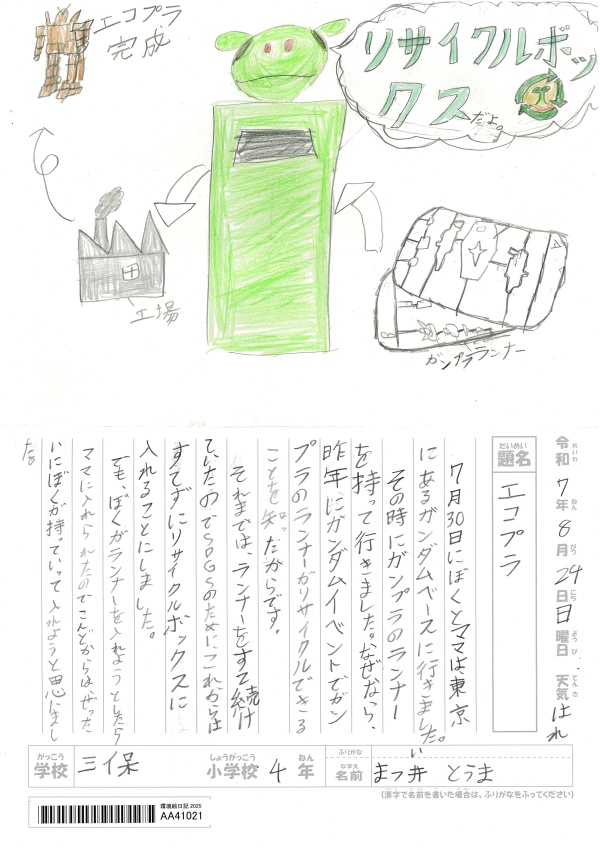 エコプラ
完成
リサイクルボッ
クスだよ。
工場
ガンプラランナー
れいわ ねん がつ にち ようび てんき
令和7年8月24日日曜日 天気 はれ
だいめい
題名 エコプラ
7月30日にぼくとママは、東京
にあるガンダムベースに行きました。
その時にガンプラのランナー
を持って行きました。なぜなら、
昨年にガンダムイベントでガン
プラのランナーがリサイクルできる
ことを知ったからです。
それまでは、ランナーをすて続け
ていたのでSDGSのためにこれからは
すてずにリサイクルボックスに
入れることにしました。
でも、ぼくがランナーを入れようとしたら
ママに入れられたのでこんどからは、ぜった
いにぼくが持っていって入れようと思いまし
た。
がっこう しょうがっこう ねん ふりがな なまえ
学校 三保 小学校 4年 名前 まつ井 とうま
い
(漢字で名前を書いた場合は、ふりがなをふってください)
環境絵日記 2025
AA41021